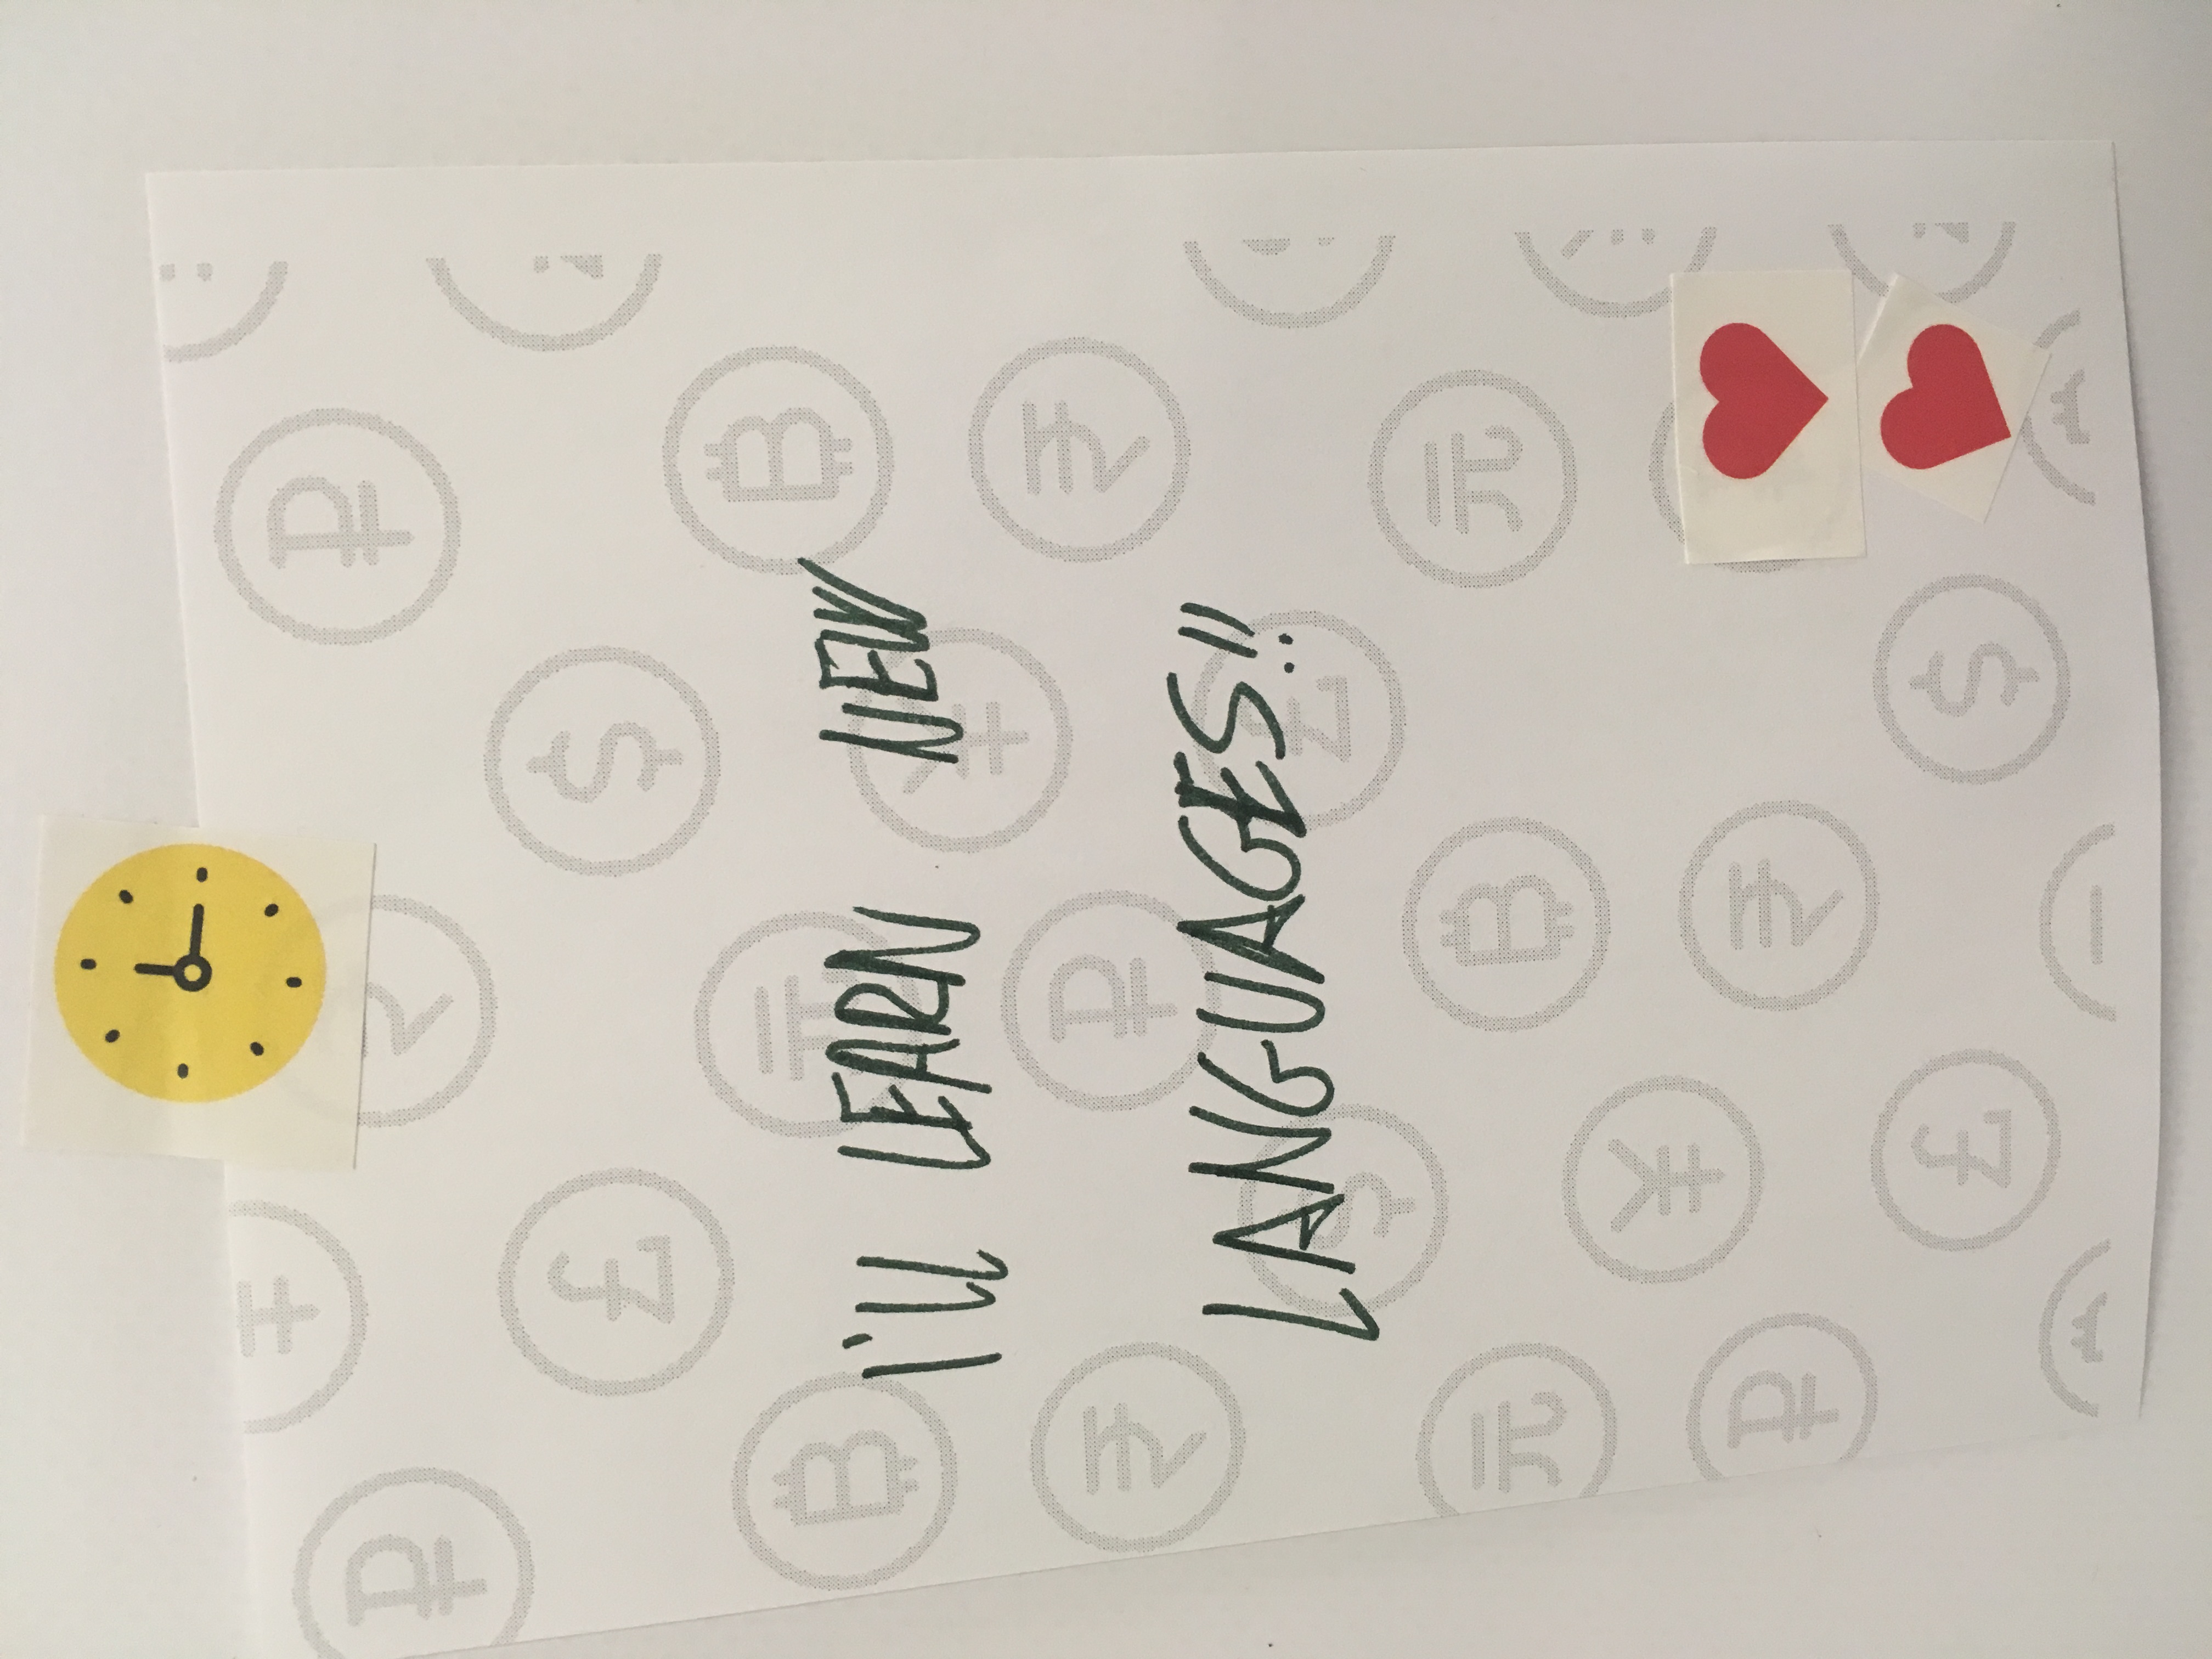 I'LL LEARN NEW
LANGUAGES!!